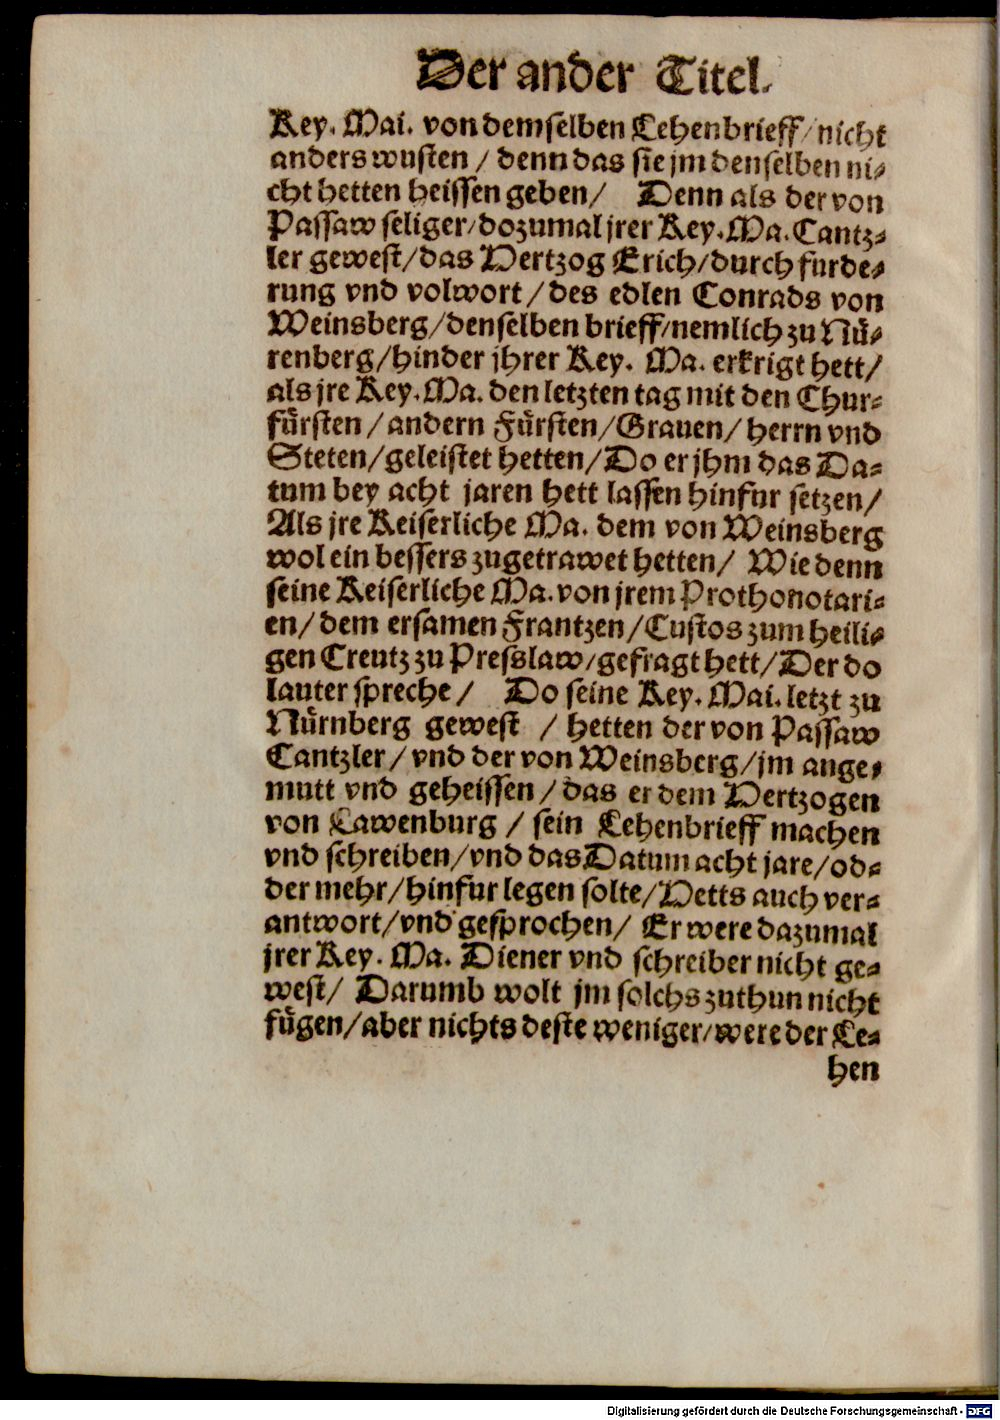 Der ander Titel.
Key. Mai. von demselben Lehenbrieff/ nicht
anders wusten / denn das sie jm denselben ni-
cht hetten heissen geben/ Denn als der von
Passaw seliger/ dozumal jrer Key. Ma. Cantz-
ler gewest/ das Hertzog Erich/ durch furde-
rung vnd volwort/ des edlen Conrads von
Weinsberg/ denselben brieff/ nemlich zu Nü-
renberg/ hinder jhrer Key. Ma. erkrigt hett/
als jre Key. Ma. den letzten tag mit den Chur-
fürsten / andern Fürsten/ Grauen/ herrn vnd
Steten/ geleistet hetten/ Do er jhm das Da-
tum bey acht jaren hett lassen hinfur setzen/
Als jre Keiserliche Ma. dem von Weinsberg
wol ein bessers zugetrawet hetten/ Wie denn
seine Keiserliche Ma. von jrem Prothonotari-
en/ dem ersamen Frantzen/ Custos zum heili-
gen Creutz zu Presslaw/ gefragt hett/ Der do
lauter spreche / Do seine Key. Mai. letzt zu
Nürnberg gewest / hetten der von Passaw
Cantzler/ vnd der von Weinsberg/ jm ange-
mutt vnd geheissen/ das er dem Hertzogen
von Lawenburg / sein Lehenbrieff machen
vnd schreiben/ vnd das Datum acht jare/ od-
der mehr/ hinfur legen solte/ Hetts auch ver-
antwort/ vnd gesprochen/ Er were dazumal
jrer Key. Ma. Diener vnd schreiber nicht ge-
west/ Darumb wolt jm solchs zuthun nicht
fügen/ aber nichts deste weniger/ were der Le-
hen
Digitalisierung gefördert durch die Deutsche Forschungsgemeinschaft - DFG